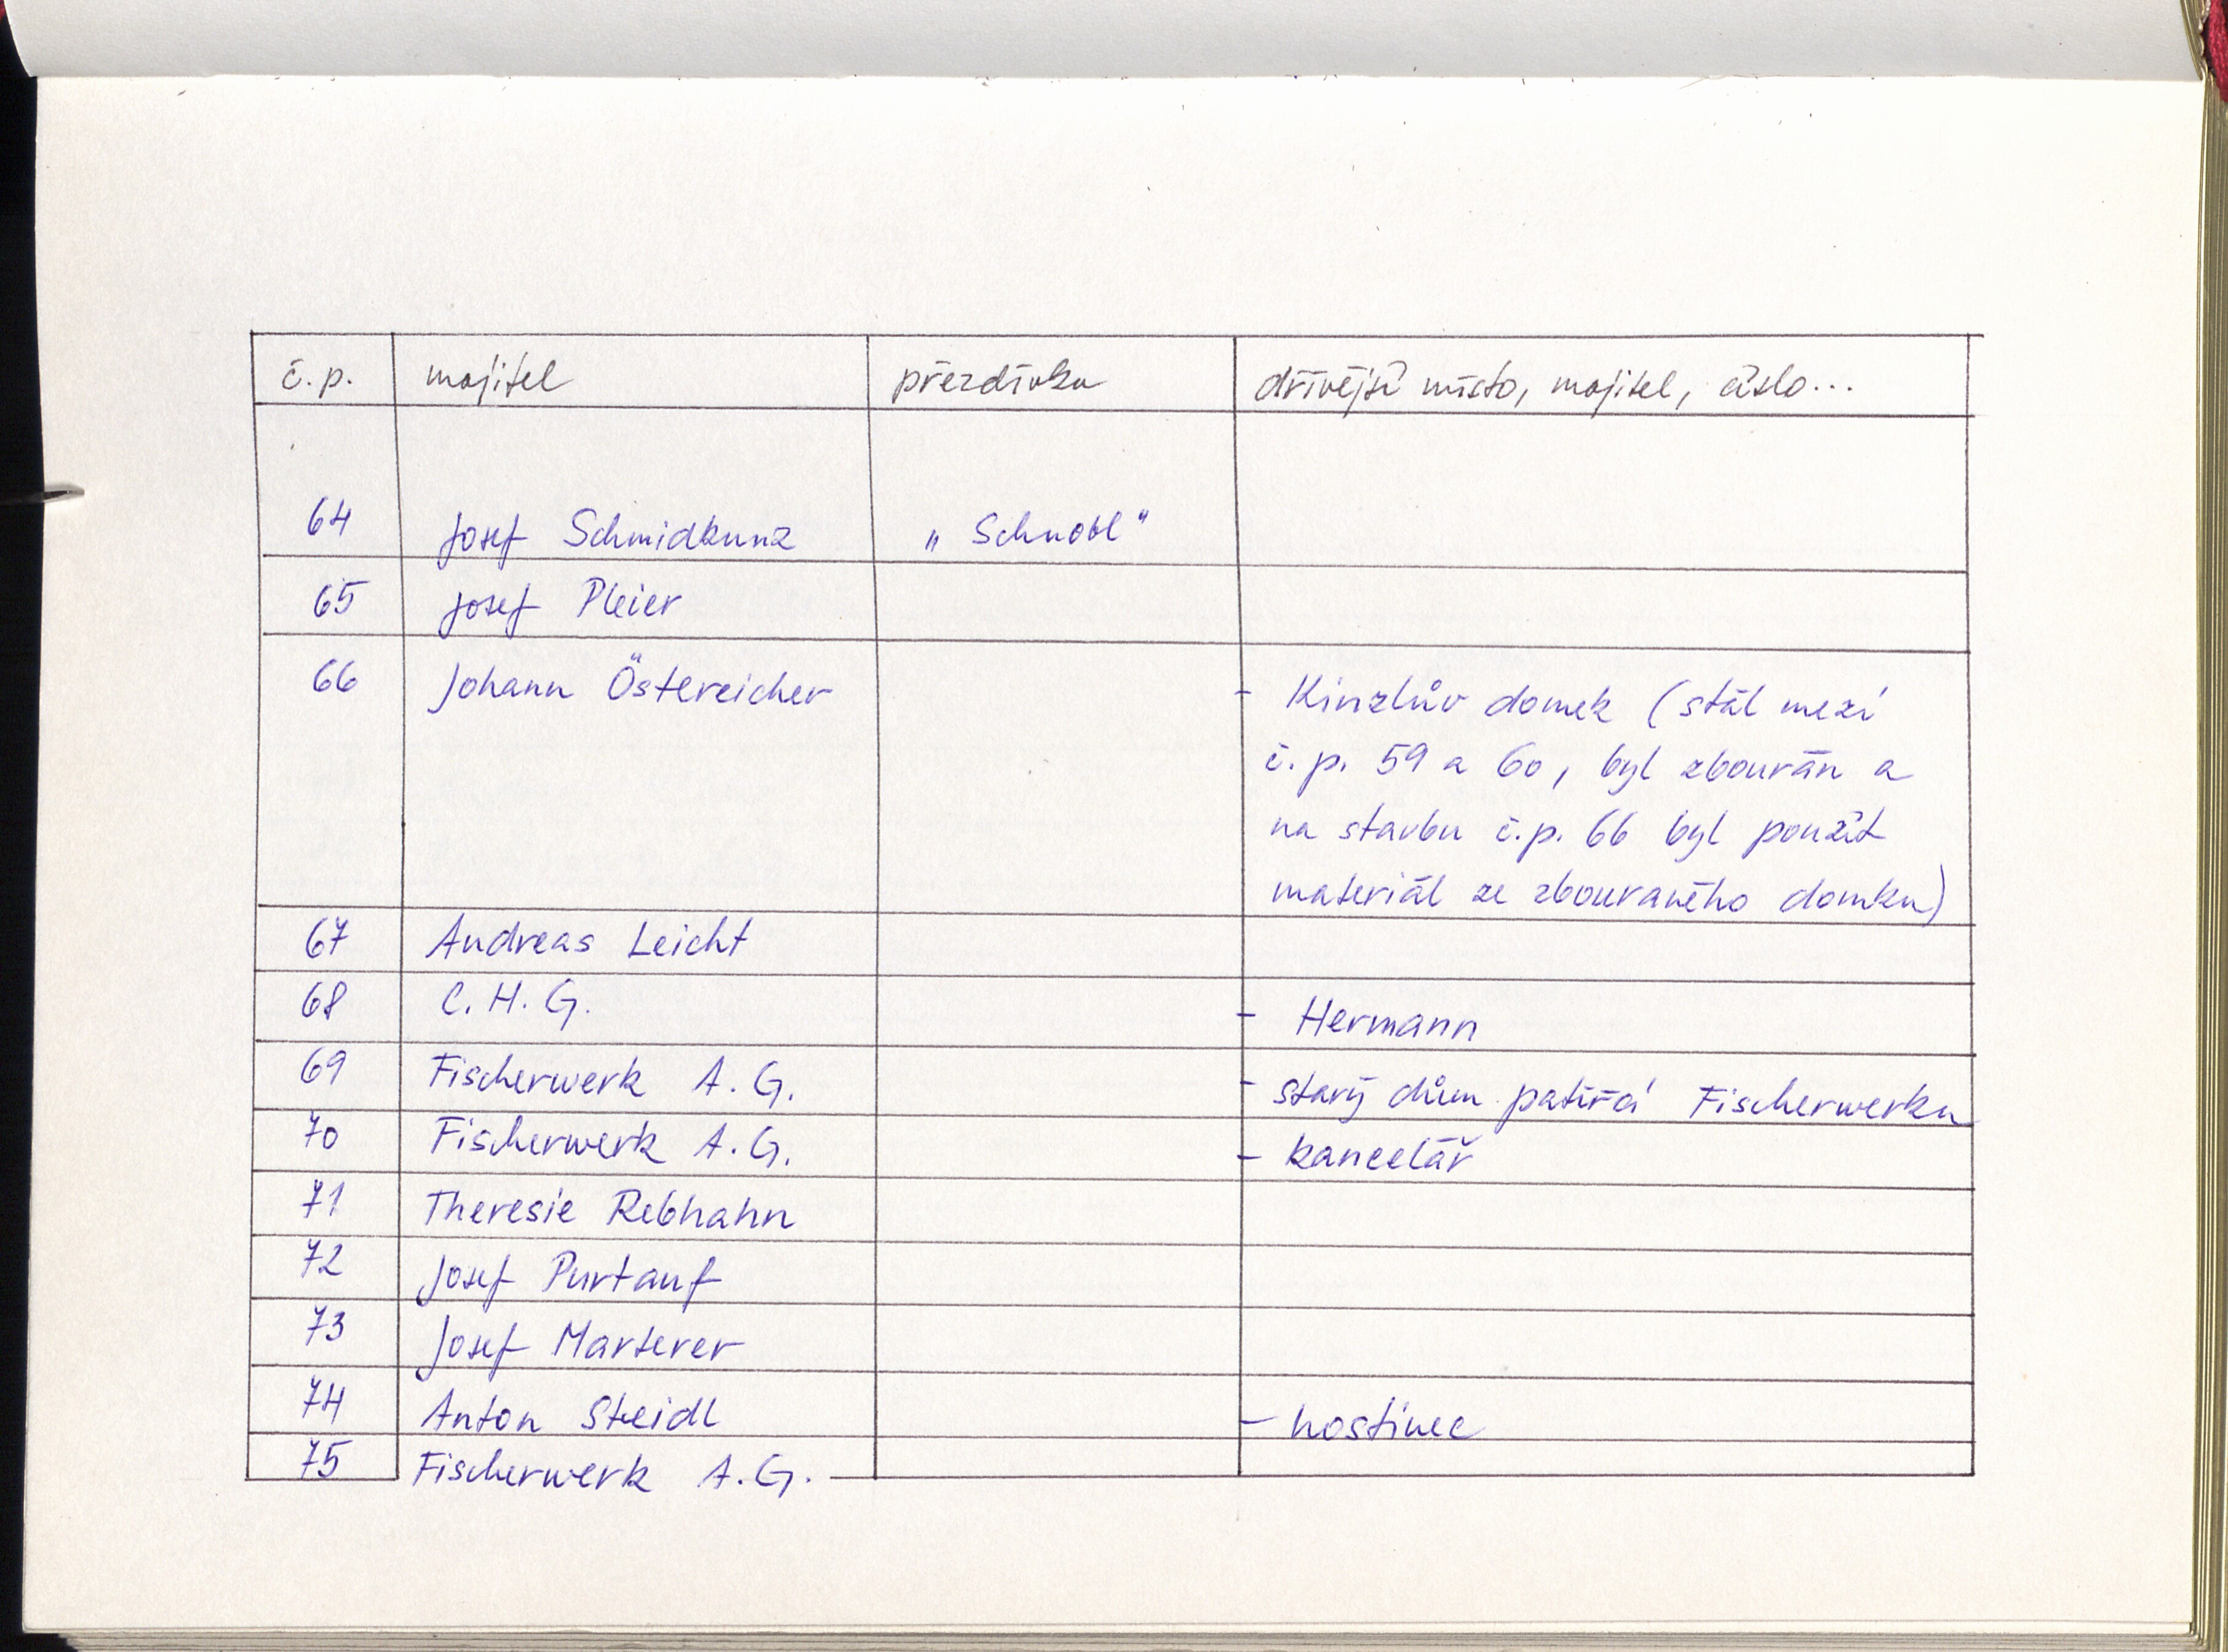 č.p. majitel přezdívka dřívější místo, majitel, číslo...
64 Josef Schmidkunz „Schnobl"
65 Josef Pleier
66 Johann Östereicher - Kinzlův domek (stál mezi
č.p. 59 a 60, byl zbourán a
na stavbu č.p. 66 byl použit
materiál ze zbouraného domku)
67 Andreas Leicht
68 C.H.G. - Hermann
69 Fischerwerk A.G. - starý dům patřící Fischerwerku
70 Fischerwerk A.G. - kancelář
71 Theresie Rebhahn
72 Josef Purtauf
73 Josef Marterer
74 Anton Steidl - hostinec
75 Fischerwerk A.G.